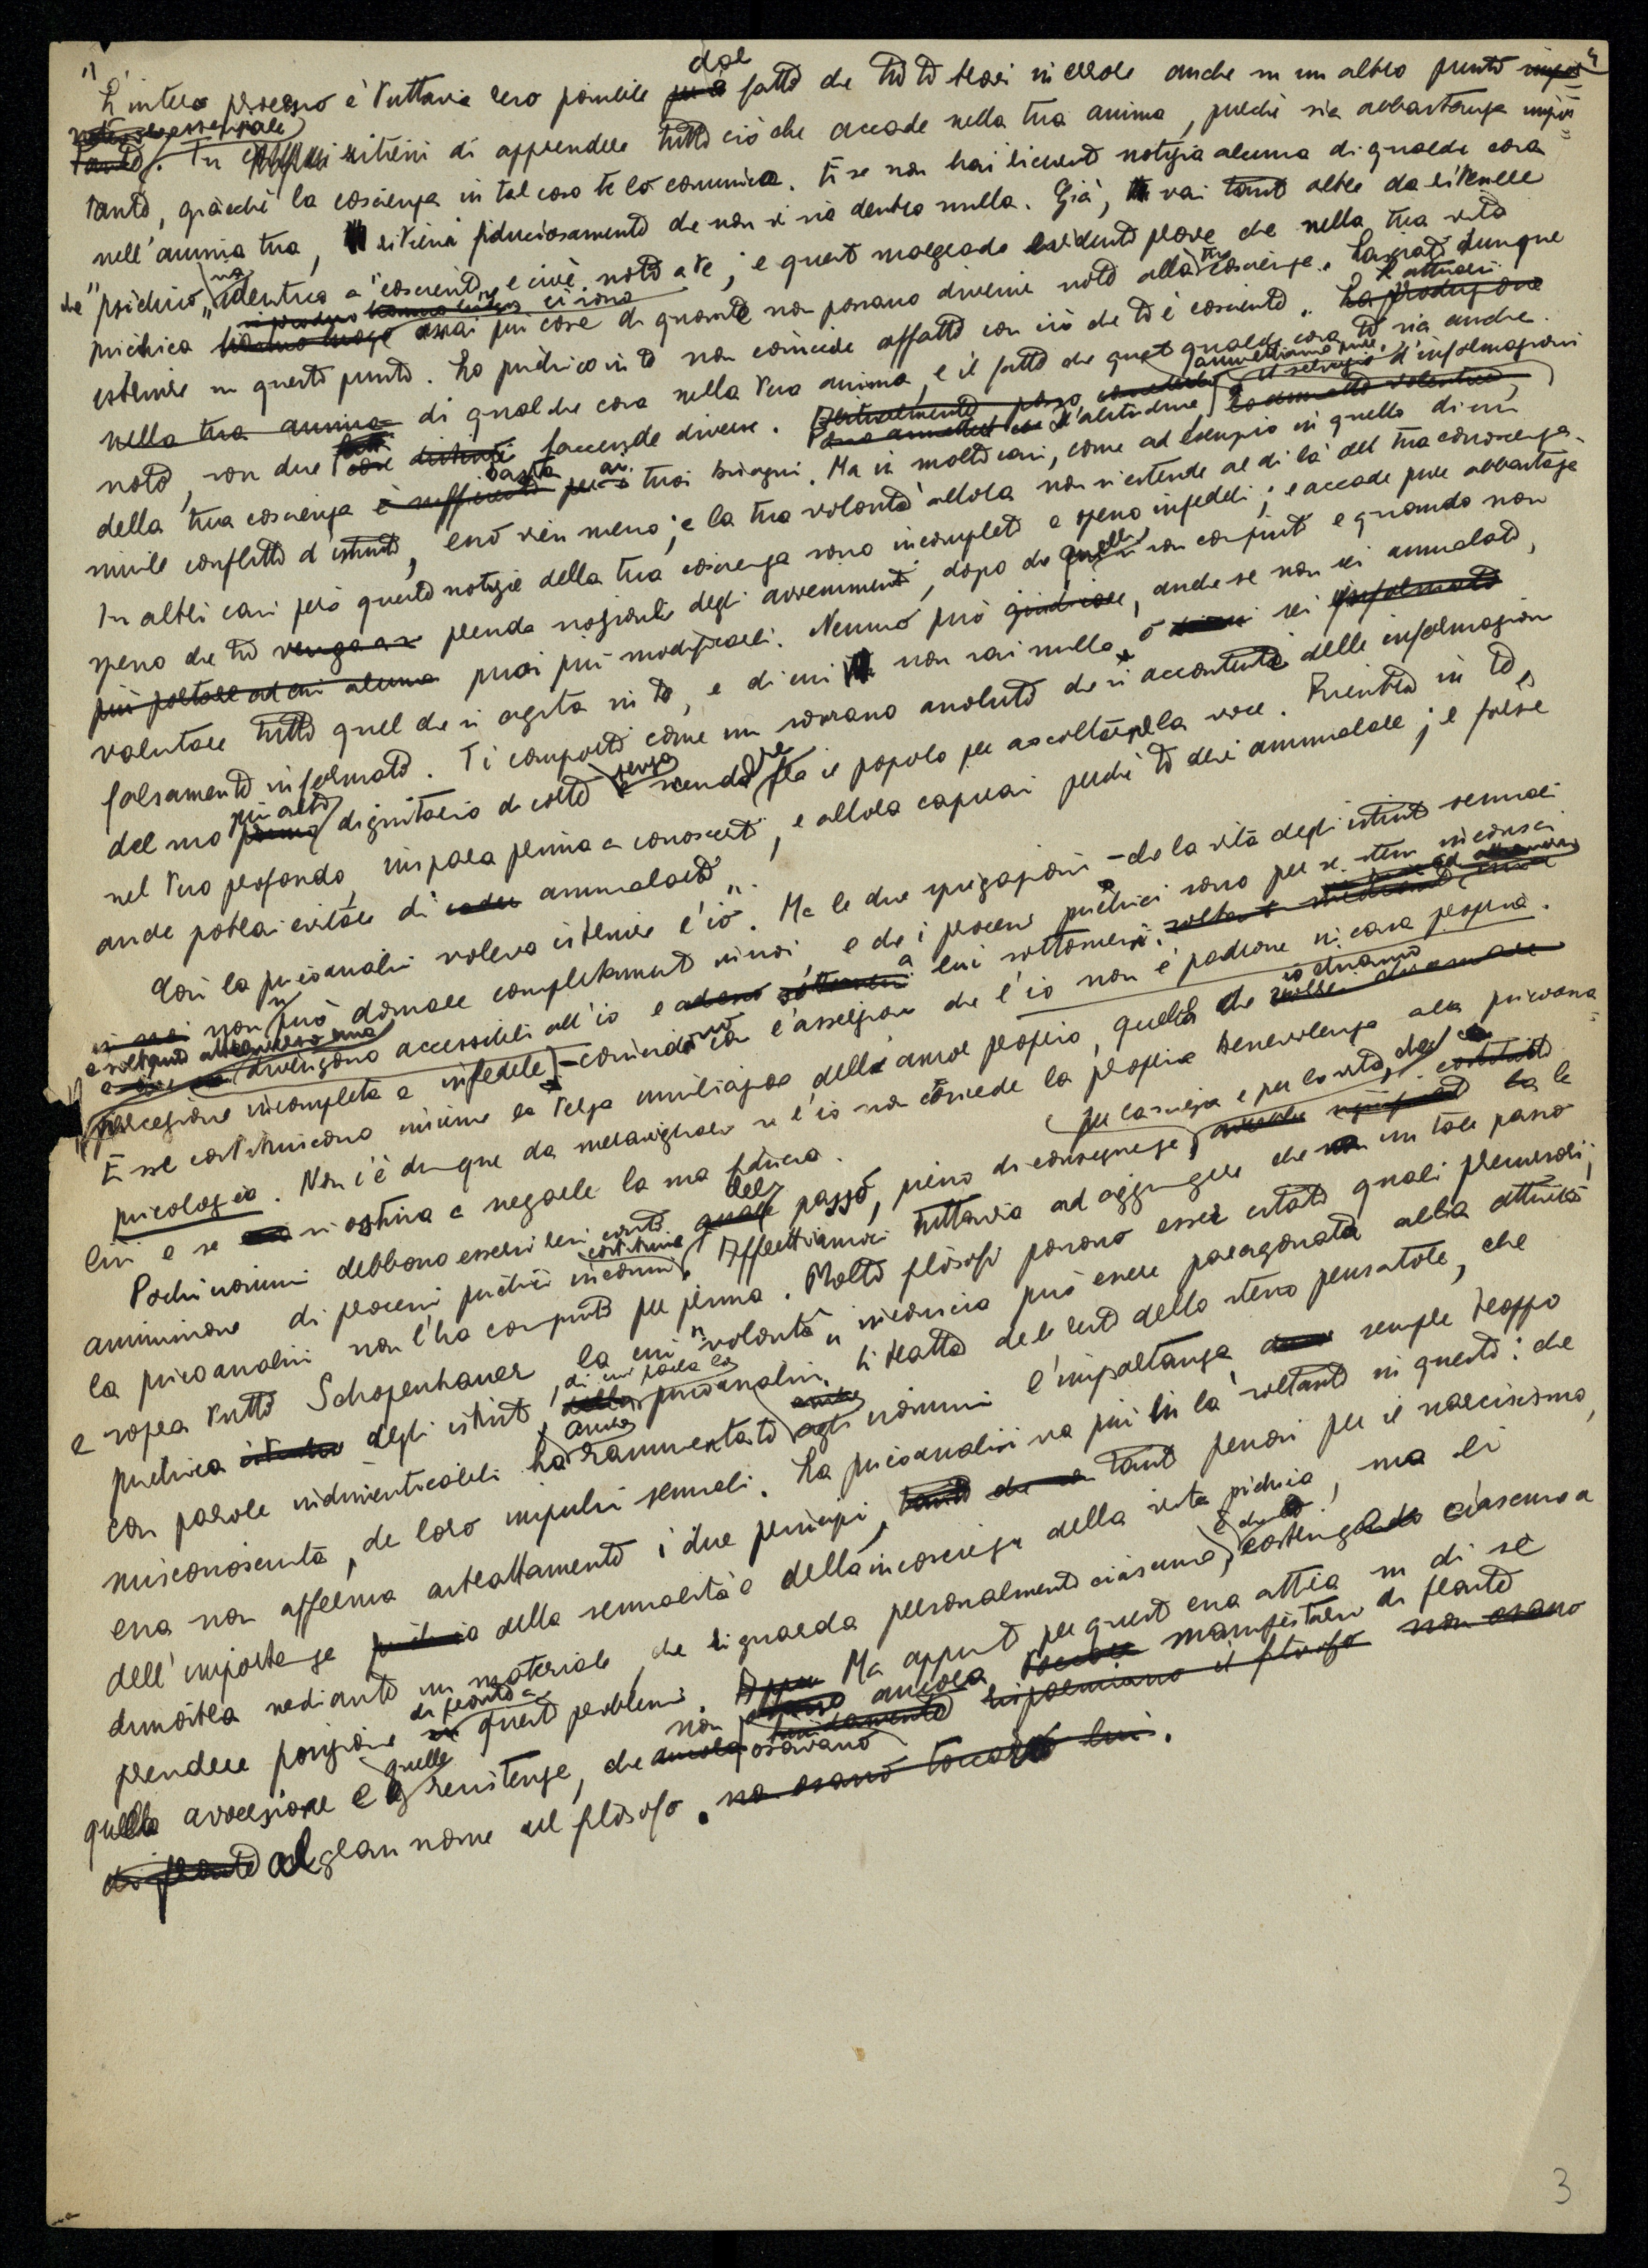 "L'intero processo è tuttavia reso possibile dal fatto che tu ti trovi in errore anche su un altro punto impor=
tante. Tu ritieni di apprendere tutto ciò che accade nella tua anima, purché sia abbastanza impor=
tante, giacché la coscienza in tal caso te lo comunica. E se non hai ricevuto notizia alcuna di qualche cosa
nell'anima tua, ritieni fiduciosamente che non vi sia dentro nulla. Già, vai tant'oltre da ritenere
che "psichico" sia identico a "cosciente", e cioè noto a te; e questo malgrado evidenti prove che nella tua vita
psichica ci sono assai più cose di quante non possano divenire note alla tua coscienza. Lasciati dunque
istruire su questo punto. Lo psichico in te non coincide affatto con ciò che ti è cosciente. L'attuarsi
nella tua anima di qualche cosa nella tua anima, e il fatto che questo qualche cosa ti sia anche
noto, son due faccende diverse. ammettiamo pure, il servizio d'informazioni
della tua coscienza basta ai tuoi bisogni. Ma in molti casi, come ad esempio in quello di un
simile conflitto d'istinti, esso vien meno; e la tua volontà allora non si estende al di là della tua conoscenza.
In altri casi però queste notizie della tua coscienza sono incomplete e spesso infedeli; e accade pure abbastanza
spesso che tu prenda nozione degli avvenimenti, dopo che questi si son compiuti e quando non
puoi più modificarli. Nessuno può giudicare, anche se non sei ammalato,
valutare tutto quel che si agita in te, e di cui non sai nulla o sei
falsamente informato. Ti comporti come un sovrano assoluto che si accontenti delle informazioni
del suo più alto dignitario di corte senza scendere fra il popolo per ascoltarne la voce. Rientra in te,
nel tuo profondo, impara prima a conoscerti, e allora capirai perché ti devi ammalare; e forse
anche potrai evitare di ammalarti".
Così la psicoanalisi voleva istruire l'io. Ma le due spiegazioni - che la vita degli istinti sessuali
non si può domare completamente in noi, e che i processi psichici sono per se stessi inconsci
e soltanto attraverso una divengono accessibili all'io e a lui sottomessi
percezione incompleta e infedele - coincidono con l'asserzione che l'io non è padrone in casa propria.
Esse costituiscono insieme la terza umiliazione dell'amor proprio, quella che io chiamo
psicologica. Non c'è dunque da meravigliarsi se l'io non concede la propria benevolenza alla psicoana=
lisi e se si ostina a negarle la sua fiducia.
Pochi uomini debbono essersi resi conto del passo, pieno di conseguenze per la scienza e per la vita, che costituisce la
ammissione di processi psichici inconsci. Affrettiamoci tuttavia ad aggiungere che un tale passo
la psicoanalisi non l'ha compiuto per prima. Molti filosofi possono esser citati quali precursori;
e sopra tutti Schopenhauer, la cui "volontà" inconscia può essere paragonata alla attività
psichica degli istinti, di cui parla la psicoanalisi. Si tratta del resto dello stesso pensatore, che
con parole indimenticabili ha anche rammentato agli uomini l'importanza sempre troppo
misconosciuta, dei loro impulsi sessuali. La psicoanalisi va più in là soltanto in questo: che
essa non afferma astrattamente i due principi, tanto penosi per il narcisismo,
dell'importanza della sessualità e della incoscienza della vita psichica, ma li
dimostra mediante un materiale che riguarda personalmente ciascuno, e che costringe ciascuno a
prendere posizione di fronte a questi problemi. Ma appunto per questo essa attira su di sé
quella avversione e quelle resistenze, che non osavano ancora manifestarsi di fronte
al gran nome del filosofo.
3